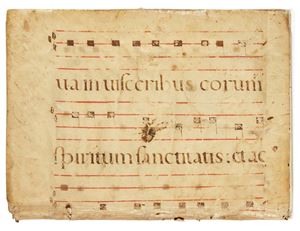 ua in visceribus eorum
spiritum sanctitatis: et ac